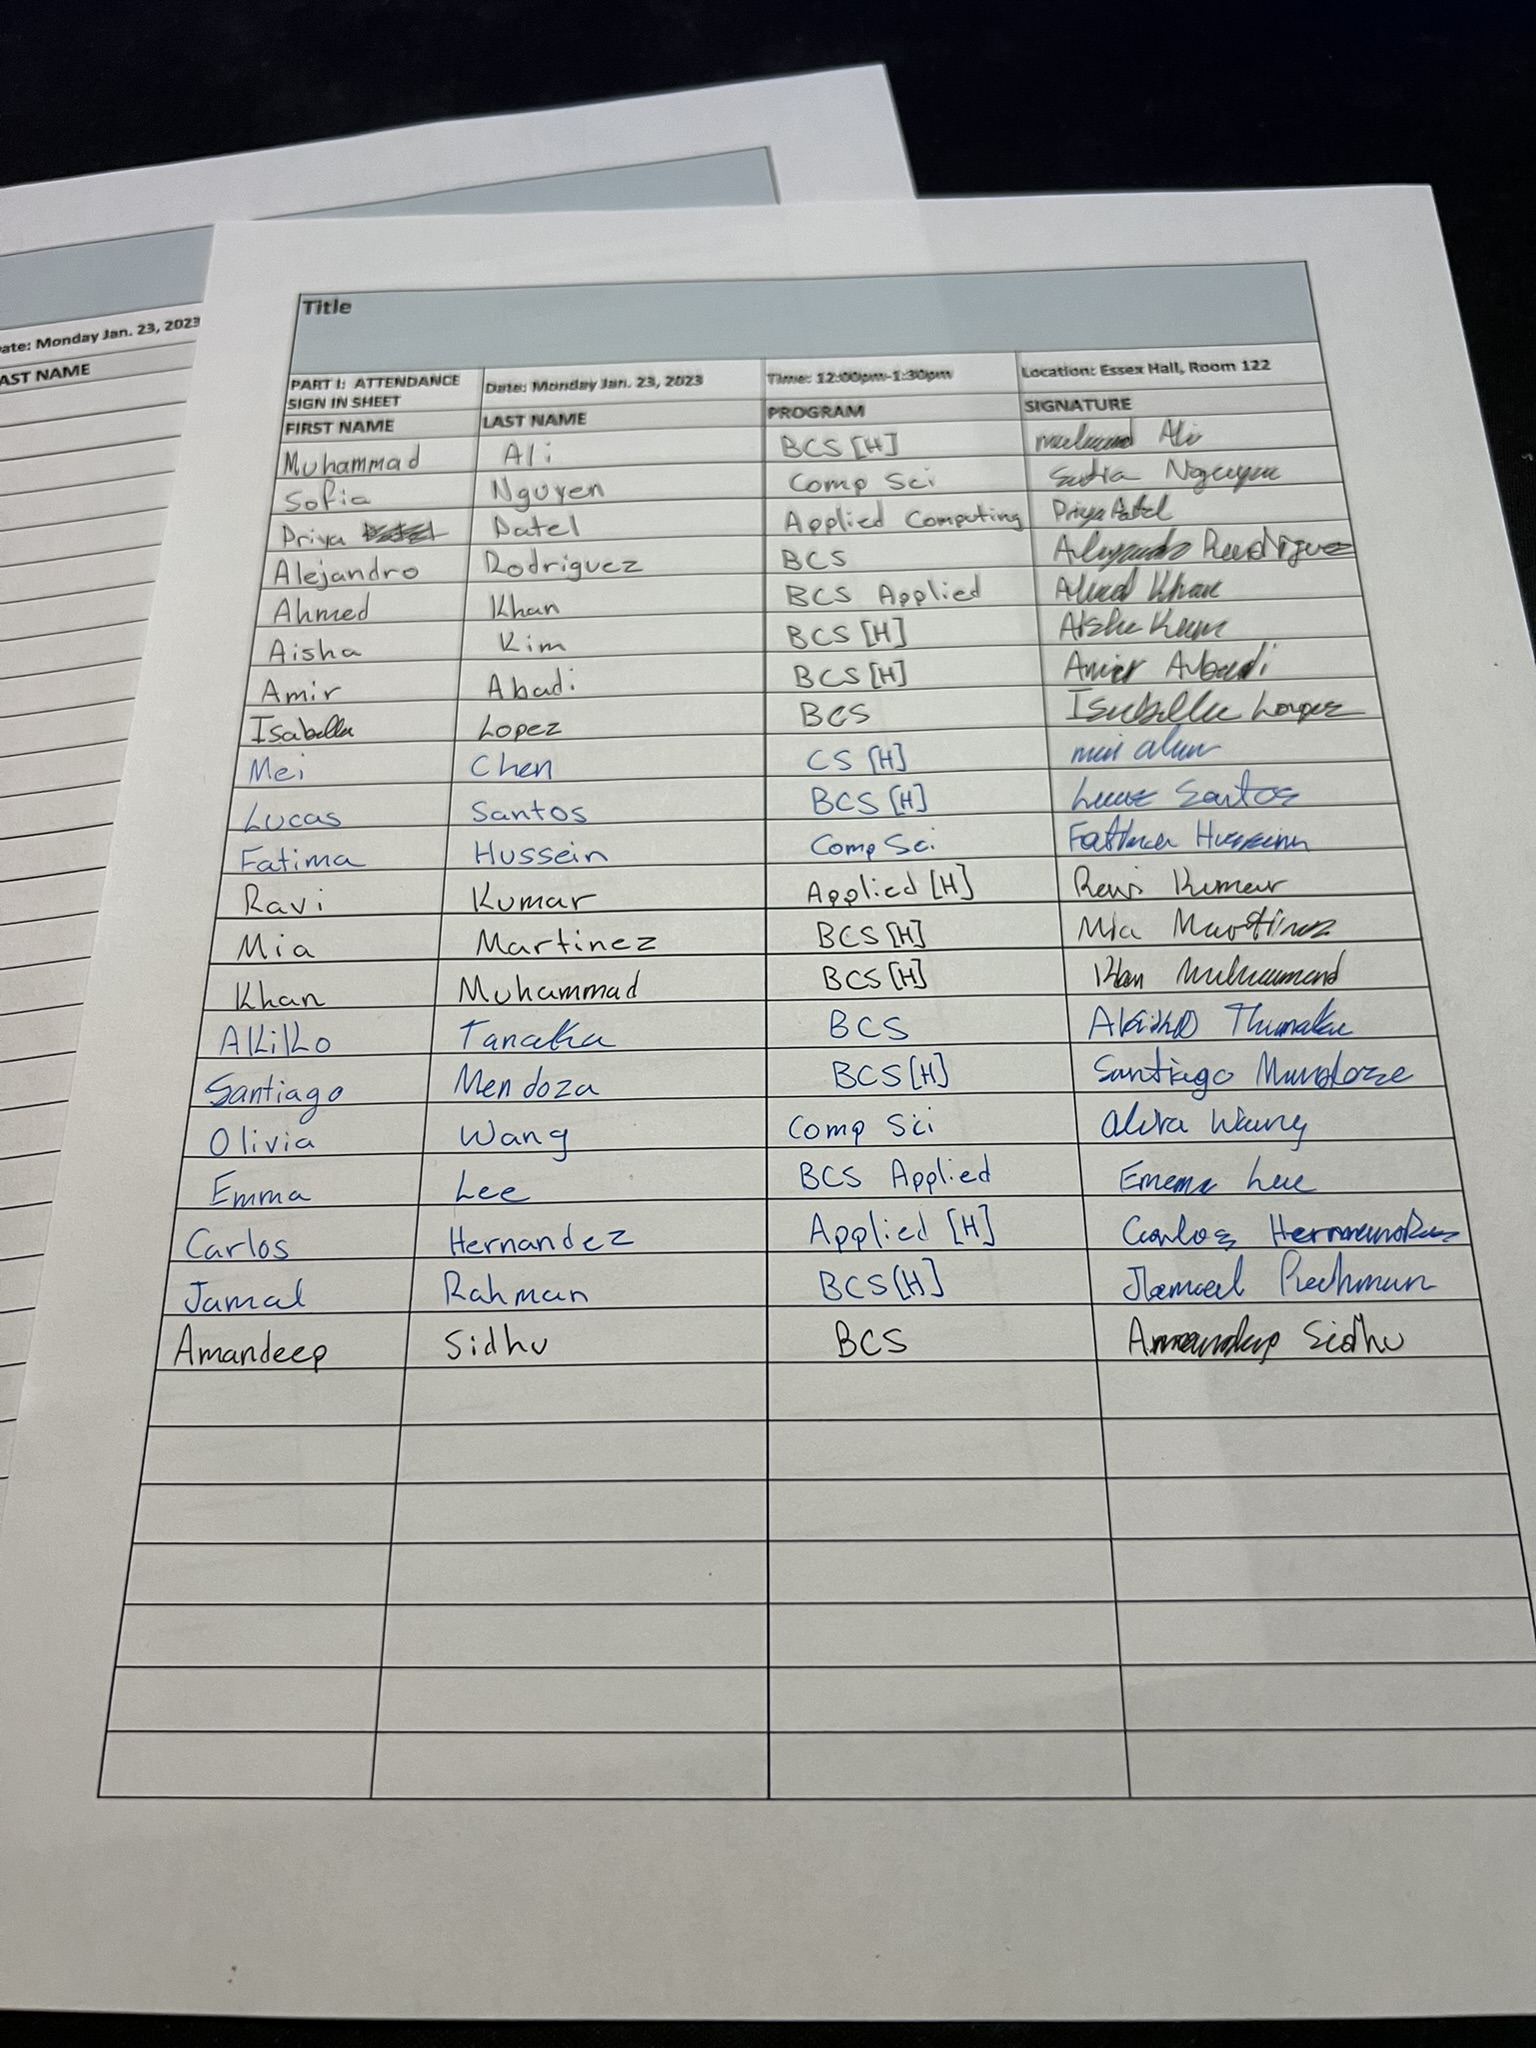 ate: Monday Jan. 23, 2023
AST NAME
Title
PART I: ATTENDANCE SIGN IN SHEET Date: Monday Jan. 23, 2023 Time: 12:00pm-1:30pm Location: Essex Hall, Room 122
FIRST NAME LAST NAME PROGRAM SIGNATURE
Muhammad Ali BCS [H] Ali
Sofia Nguyen Comp Sci
Priya Patel Applied Computing Priya Patel
Alejandro Rodriguez BCS Rodriguez
Ahmed Khan BCS Applied Khan
Aisha Kim BCS [H]
Amir Abadi BCS [H] Amir
Isabella Lopez BCS Isabella Lopez
Mei Chen CS [H]
Lucas Santos BCS [H] Santos
Fatima Hussein Comp Sci
Ravi Kumar Applied [H] Ravi Kumar
Mia Martinez BCS [H] Mia Martinez
Khan Muhammad BCS [H]
Akiko Tanaka BCS
Santiago Mendoza BCS [H] Santiago
Olivia Wang Comp Sci
Emma Lee BCS Applied Lee
Carlos Hernandez Applied [H] Carlos
Jamal Rahman BCS [H]
Amandeep Sidhu BCS Amandeep Sidhu